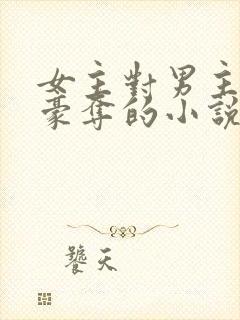 女主對男主
豪奪的小說
饕天